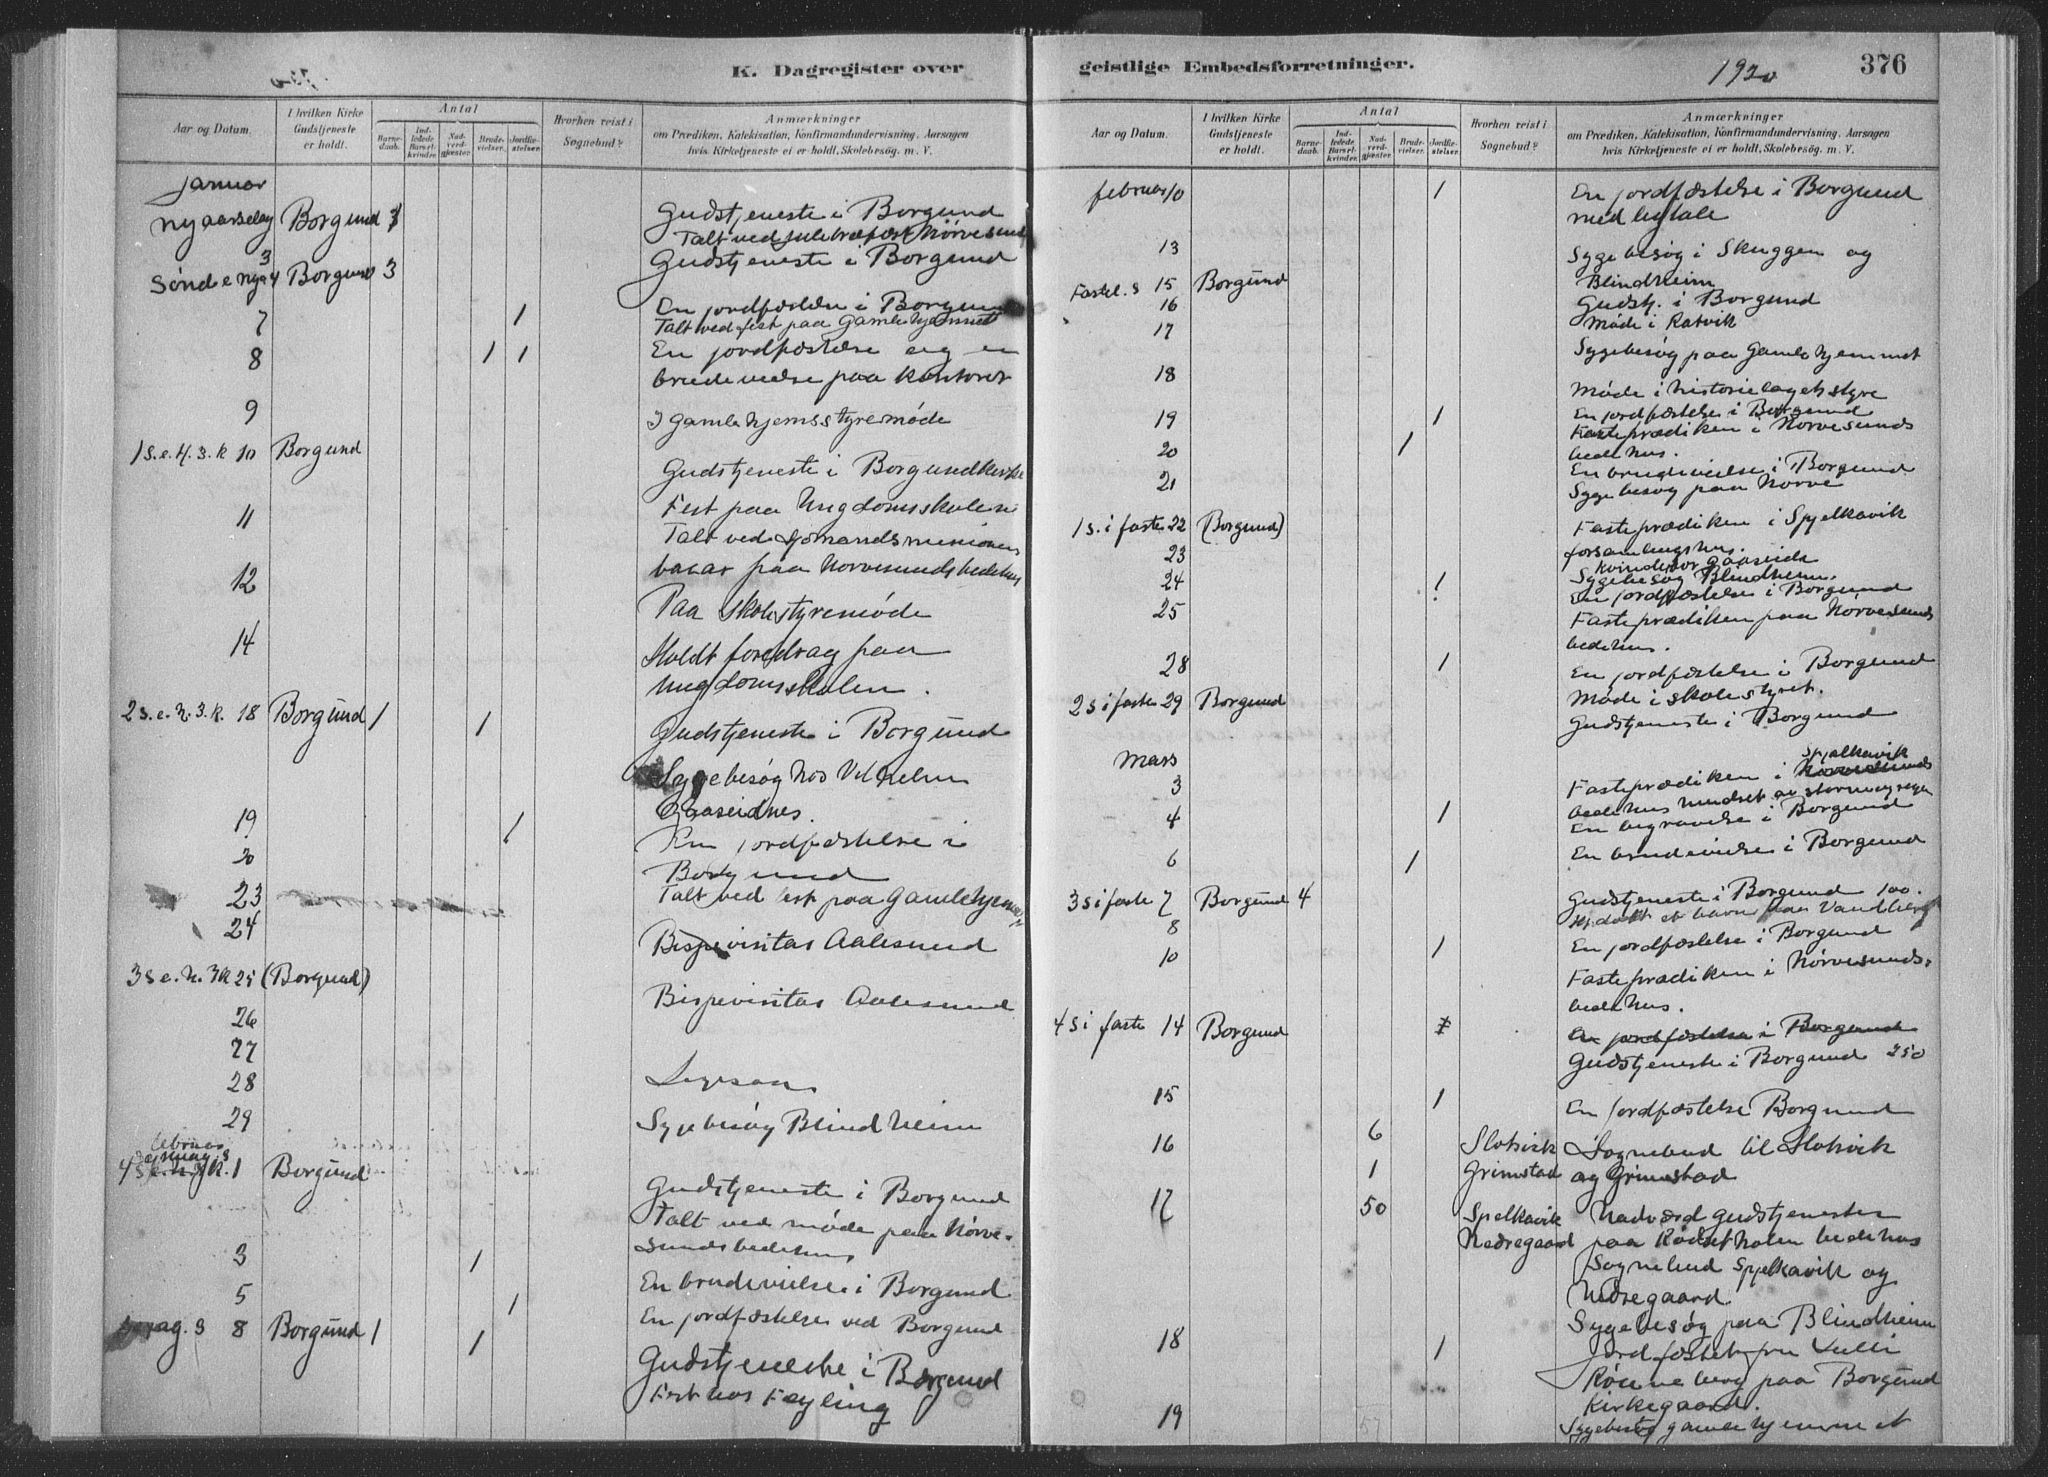 K. Dagregister over
Aar og Datum.
I hvilken Kirke Gudstjeneste er holdt.
Antal
Barnedaab.
Indledede Barselkvinder.
Nadverdgjæster.
Brudevielser.
Jordfæstelser.
Hvorhen reist i Sognebud?
Anmærkninger
om Prædiken, Katekisation, Konfirmandundervisning. Aarsagen
hvis Kirketjeneste ei er holdt, Skolebesøg. m. V.
Januar
Nyaarsdag Borgund Gudstjeneste i Borgund
Talt ved juletræfæst Nørvesund
3
Borgund 3 Gudstjeneste i Borgund
7 1 En jordfæstelse i Borgund
Talt ved fest paa Gamlehjemmet
8 1 1 En jordfæstelse og en
brudevielse paa kontoret
9 I gamlehjemsstyremøde
1 s. e. H. 3. k 10 Borgund
Gudstjeneste i Borgundkirke
Fest paa Ungdomsskolen
11 Talt ved sjømandsmisionens
basar paa Nørvesundsbedehus
12
Paa skolestyremøde
14 Holdt foredrag paa
Ungdomsskolen.
2 s. e. H. 3. k. 18 Borgund 1 1 Gudstjeneste i Borgund
Sygebesøg hos Vilhelm
Gaaseidnes.
19 1 En jordfæstelse i
20 Borgund
23 Talt ved fest paa Gamlehjemmet
24
Bispevisitas Aalesund
3 s. e. H. 3k 25 (Borgund)
Bispevisitas Aalesund
26
27
28
29 Sygebesøg Blindheim
februar
1 Borgund Gudstjeneste i Borgund
Talt ved møde paa Nørve-
sundsbedehus
3 1
En brudevielse i Borgund
5 1 En jordfæstelse ved Borgund
8 Borgund 1 1
Gudstjeneste i Borgund
Fest hos Feyling
geistlige Embedsforretninger.
1920
376
Aar og Datum.
I hvilken Kirke Gudstjeneste er holdt.
Antal
Barnedaab.
Indledede Barselkvinder.
Nadverdgjæster.
Brudevielser.
Jordfæstelser.
Hvorhen reist i Sognebud?
Anmærkninger
om Prædiken, Katekisation, Konfirmandundervisning. Aarsagen
hvis Kirketjeneste ei er holdt, Skolebesøg. m. V.
februar 10 1 En jordfæstelse i Borgund
med ligtale
13 Sygebesøg i Skuggen og
Blindheim
Fastel. s 15 Borgund Gudstj. i Borgund
16 Møde i Ratvik
17 Sygebesøg paa Gamlehjemmet
18 Møde i historielagets styre
19 1 En jordfæstelse i Borgund
Fasteprædiken i Nørvesunds
bedehus.
20 1 En brudevielse i Borgund
21 Sygebesøg paa Nørve
1 s. i faste 22 (Borgund) Fasteprædiken i Spjelkavik
forsamlingshus.
23 Kvindefor Gaaseide
24 Sygebesøg Blindheim.
1 En jordfæstelse i Borgund
25 Fasteprædiken paa Nørvesunds
bedehus.
28 1 En jordfæstelse i Borgund
Møde i skolestyret.
2 s i faste 29 Borgund Gudstjeneste i Borgund
Mars
3 Fasteprædiken i Spjelkavik
bedehus hindret av storm og regn
4 1 En begravelse i Borgund
6 1 En brudevielse i Borgund
3 s i faste 7 Borgund 4 Gudstjeneste i Borgund 100.
Hjdøbt et barn paa Vandberg
8 1 En jordfæstelse i Borgund
10 Fasteprædiken i Nørvesunds-
bedehus.
4 s i faste 14 Borgund En jordfæstelse i Borgund
Gudstjeneste i Borgund 250
15 1 En jordfæstelse Borgund
16 6 Slotsvik Sognebud til Slotsvik
1 Grimstad og Grimstad
17 50 Spelkavik Nadverd gudstjenester
Nedregaard paa Rødsetholen bedehus
Sognebud Spjelkavik og
Nedregaard.
Sygebesøg paa Blindheim
18 1 Jordfæstet fru Lulli
Rønneberg paa Borgund
Kirkegaard.
19 Sygebesøg gamlehjemmet
57